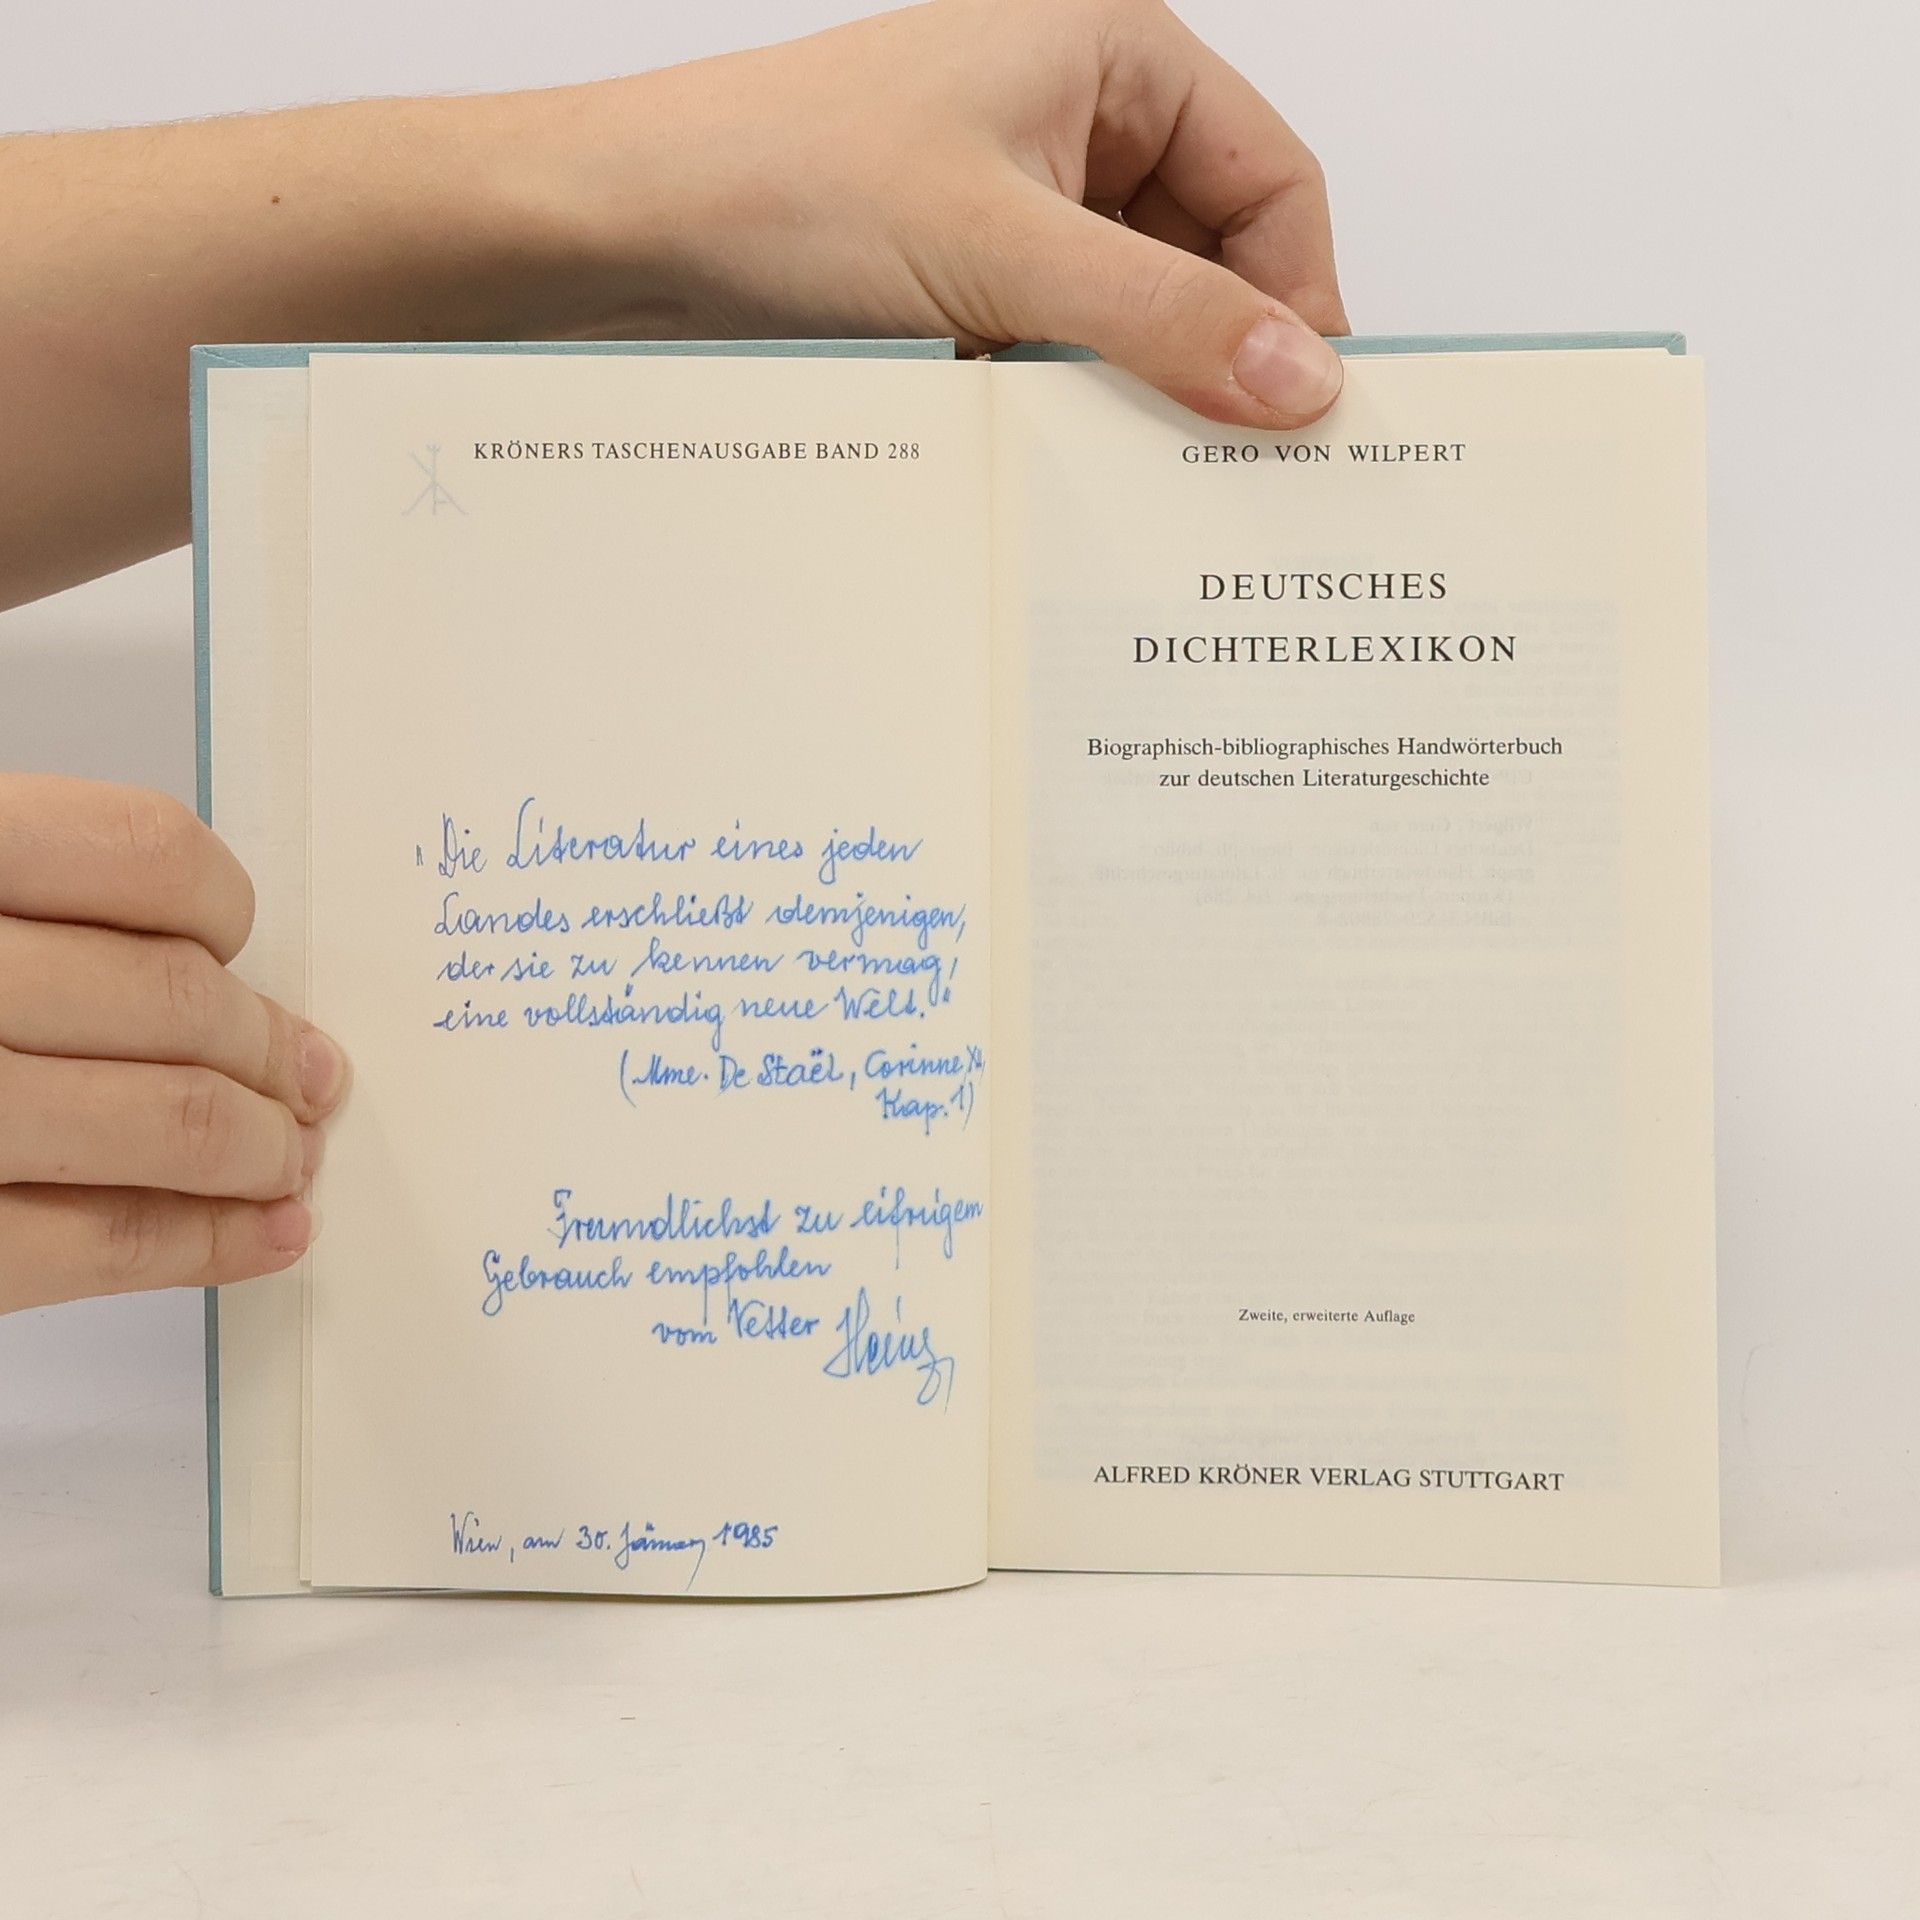 KRÖNERS TASCHENAUSGABE BAND 288
„Die Literatur eines jeden
Landes erschließt demjenigen,
der sie zu kennen vermag,
eine vollständig neue Welt.“
(Mme. De Staël, Corinne,
Kap. 1)
Freundlichst zu eifrigem
Gebrauch empfohlen
vom Vetter Heinz
Wien, am 30. Jänner 1985
GERO VON WILPERT
DEUTSCHES
DICHTERLEXIKON
Biographisch-bibliographisches Handwörterbuch
zur deutschen Literaturgeschichte
Zweite, erweiterte Auflage
ALFRED KRÖNER VERLAG STUTTGART